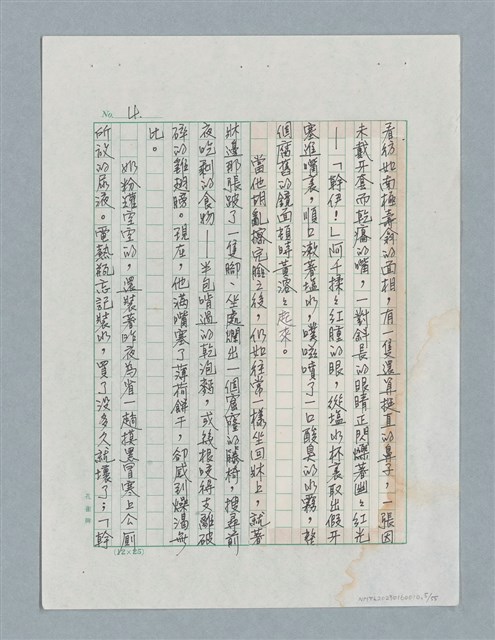 No. 4.
看彷如南極壽斜的面相，有一隻還算挺直的鼻子，一張因
未戴牙套而乾癟的嘴，一對斜長的眼睛正閃爍著幽幽紅光
——「幹伊！」阿千揉揉紅腫的眼，從塩水杯裏取出假牙
塞進嘴裏，順口漱著塩水，噗嗞噴了一口酸臭的水霧，整
個腐舊的鏡面頓時薰溶溶起來。
當他胡亂擦完臉之後，仍如往常一樣坐回妹上，就著
牀邊那張跛了一隻腳、坐處爛出一個窟窿的籐椅，搜尋前
夜吃剩的食物——半包啃過的乾泡麵，或被根咬得支離破
碎的雞翅膀。現在，他滿嘴塞了薄荷餅干，卻感到燥渴無
比。
奶粉罐空空的，還裝著昨夜為省一趟摸黑冒寒上公廁
所放的尿液。電熱瓶忘記裝水，買了沒多久就壞了；「幹
(12×25)